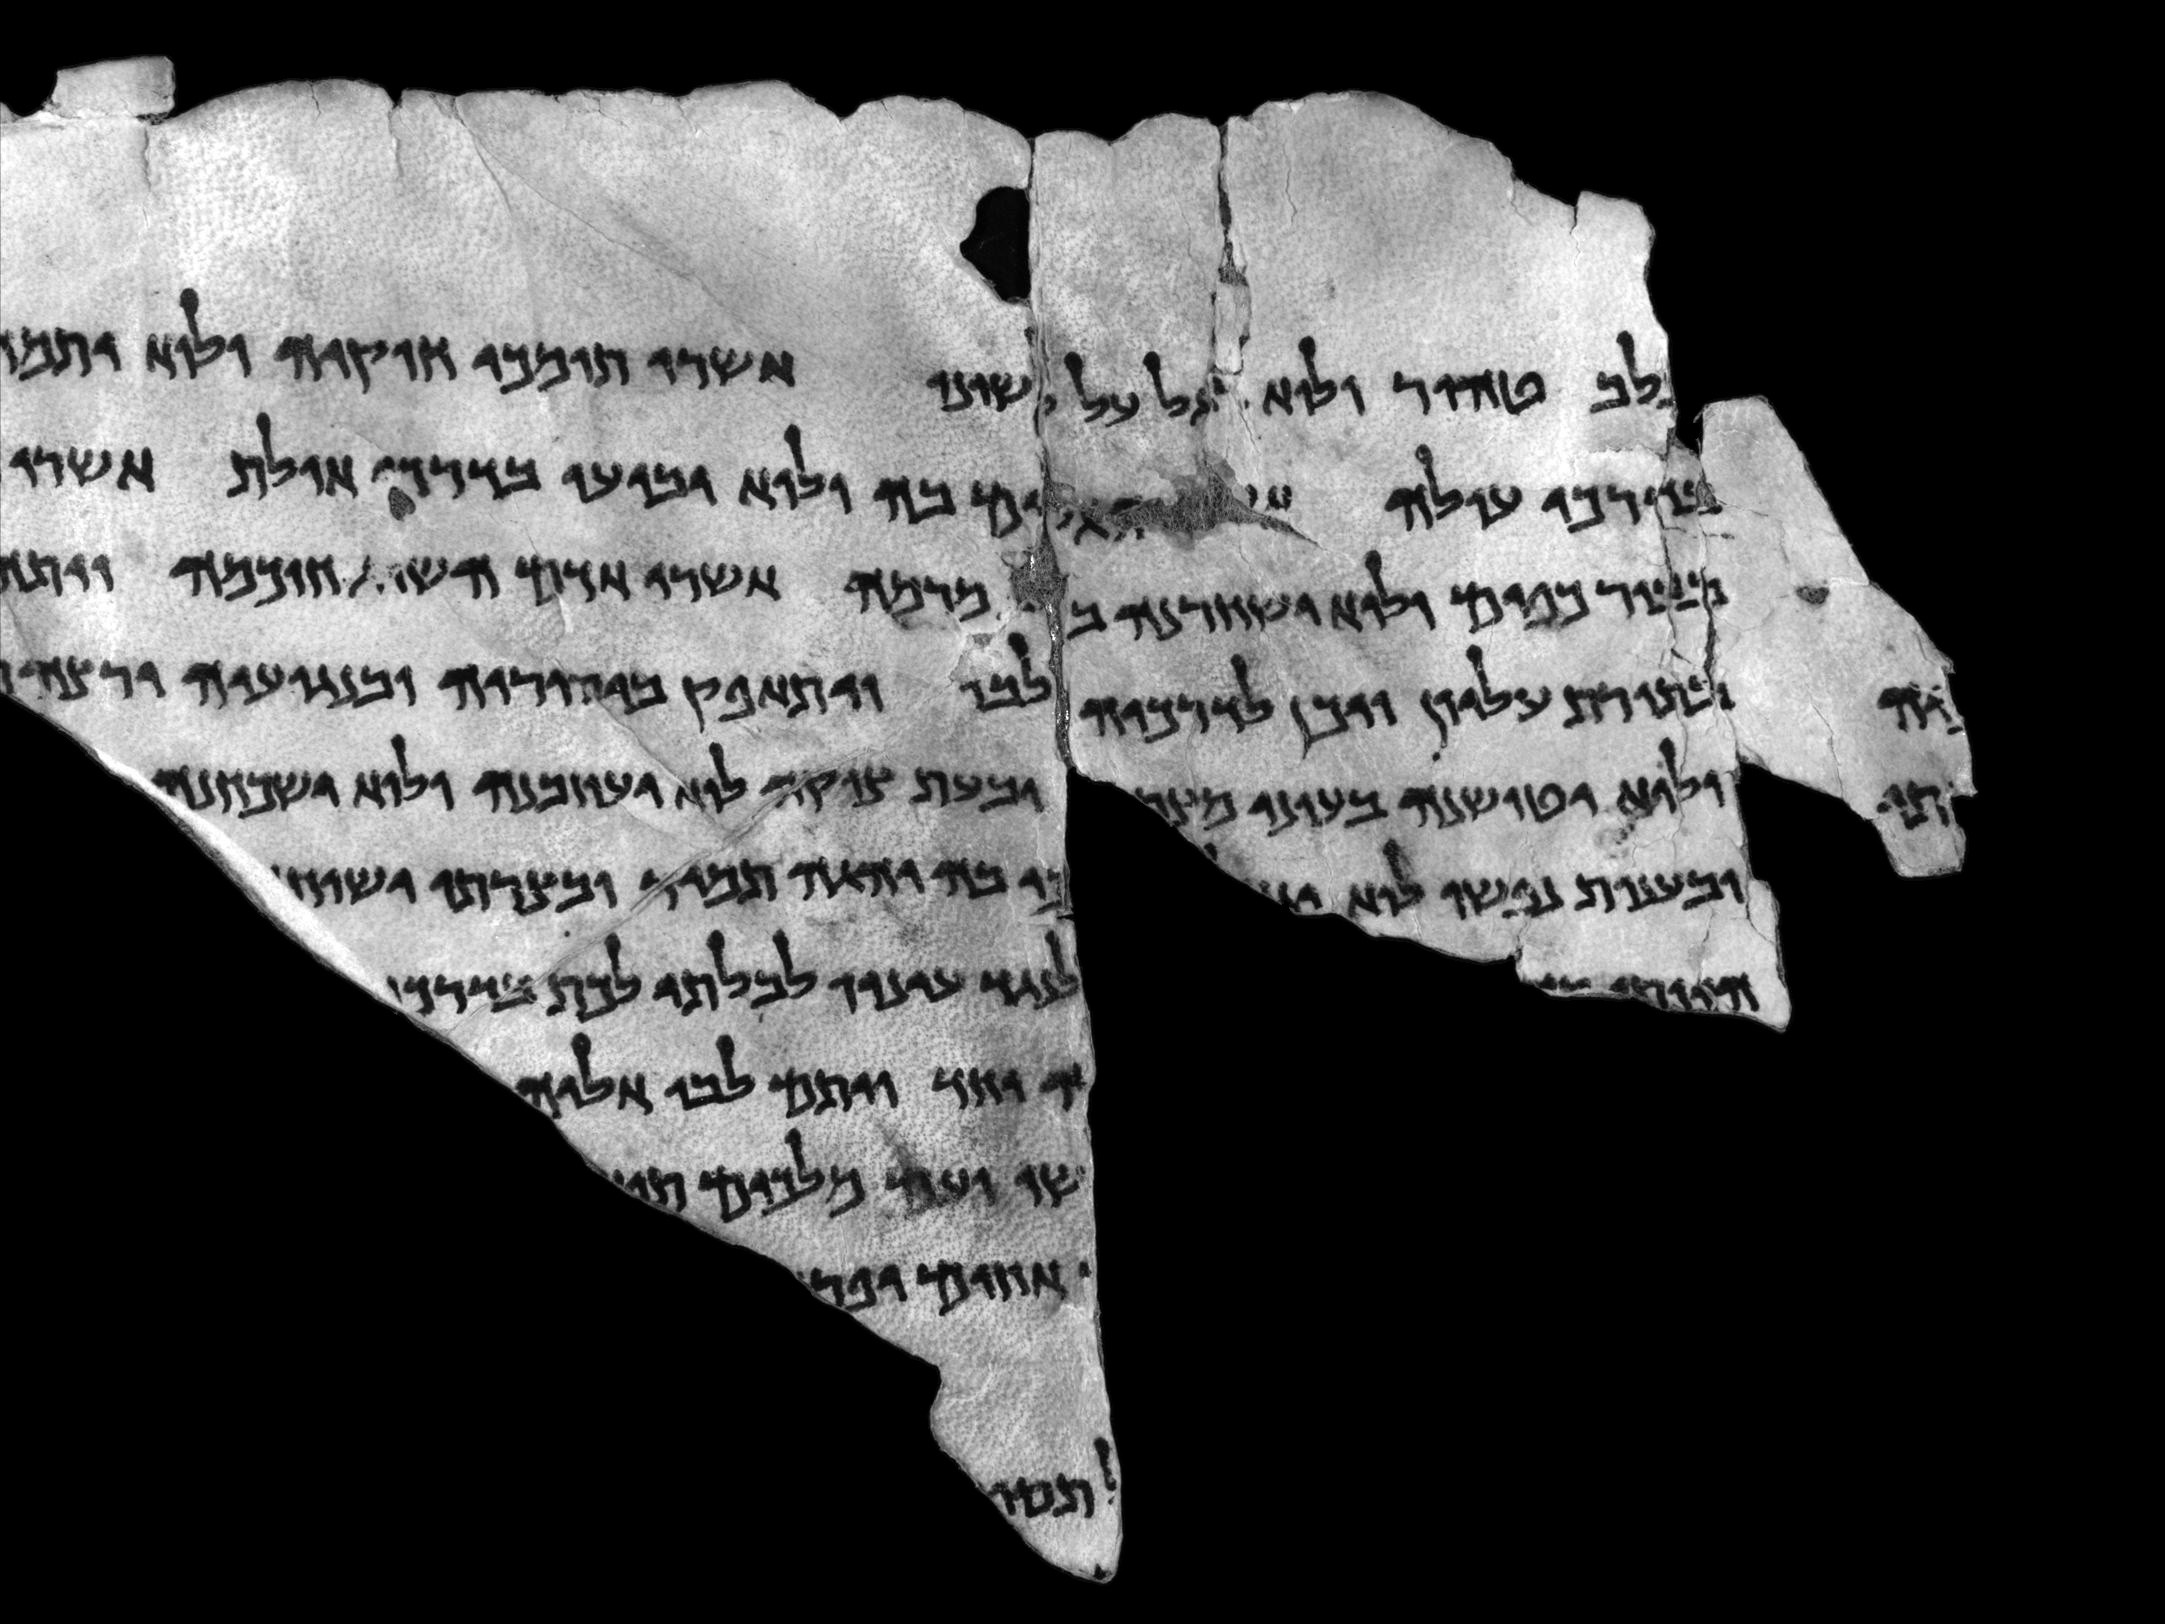 בלב טהור ולוא רגל על לשונו אשרי תומכי חוקיה ולוא יתמו
בדרכי עולה הגלים בה ולוא יביעו בדרכי אולת אשרי
בבור כפים ולוא ישחרנה ב מרמה אשרי אדם השיג חוכמה ויתה
בתורת עליון ויכן לדרכיה לבו ויתאפק ביסוריה ובנגועיה ירצה
ולוא יטושנה בעוני מצר ובעת צוקה לוא יעוזבנה ולוא ישכחנה
ובענות נפשו לוא כי בה יהגה תמיד ובצרתו ישוחח
לנגד עיניו לבלתי לכת בדרכי
יחד ויתם לבו אליה
שו ועם מלכים תוש
אחים יפר
ל תסי